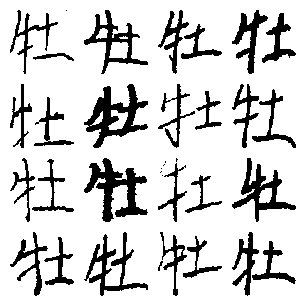 牡牡牡牡
牡牡牡牡
牡牡牡牡
牡牡牡牡